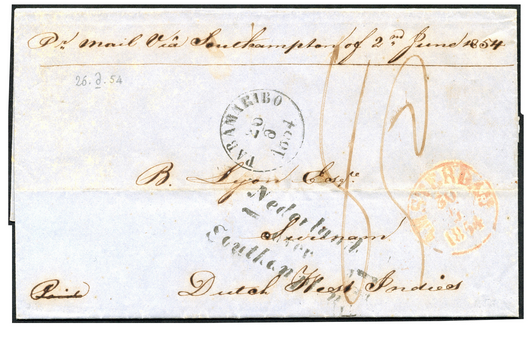 Pr Mail Via Southampton of 2nd June 1854
26.6.54
PARAMARIBO 26 6 1854
B. Lyon Esqre
Nederland
over
Southampton
Surinam
AMSTERDAM 30 5 1854
Dutch West Indies
Paid